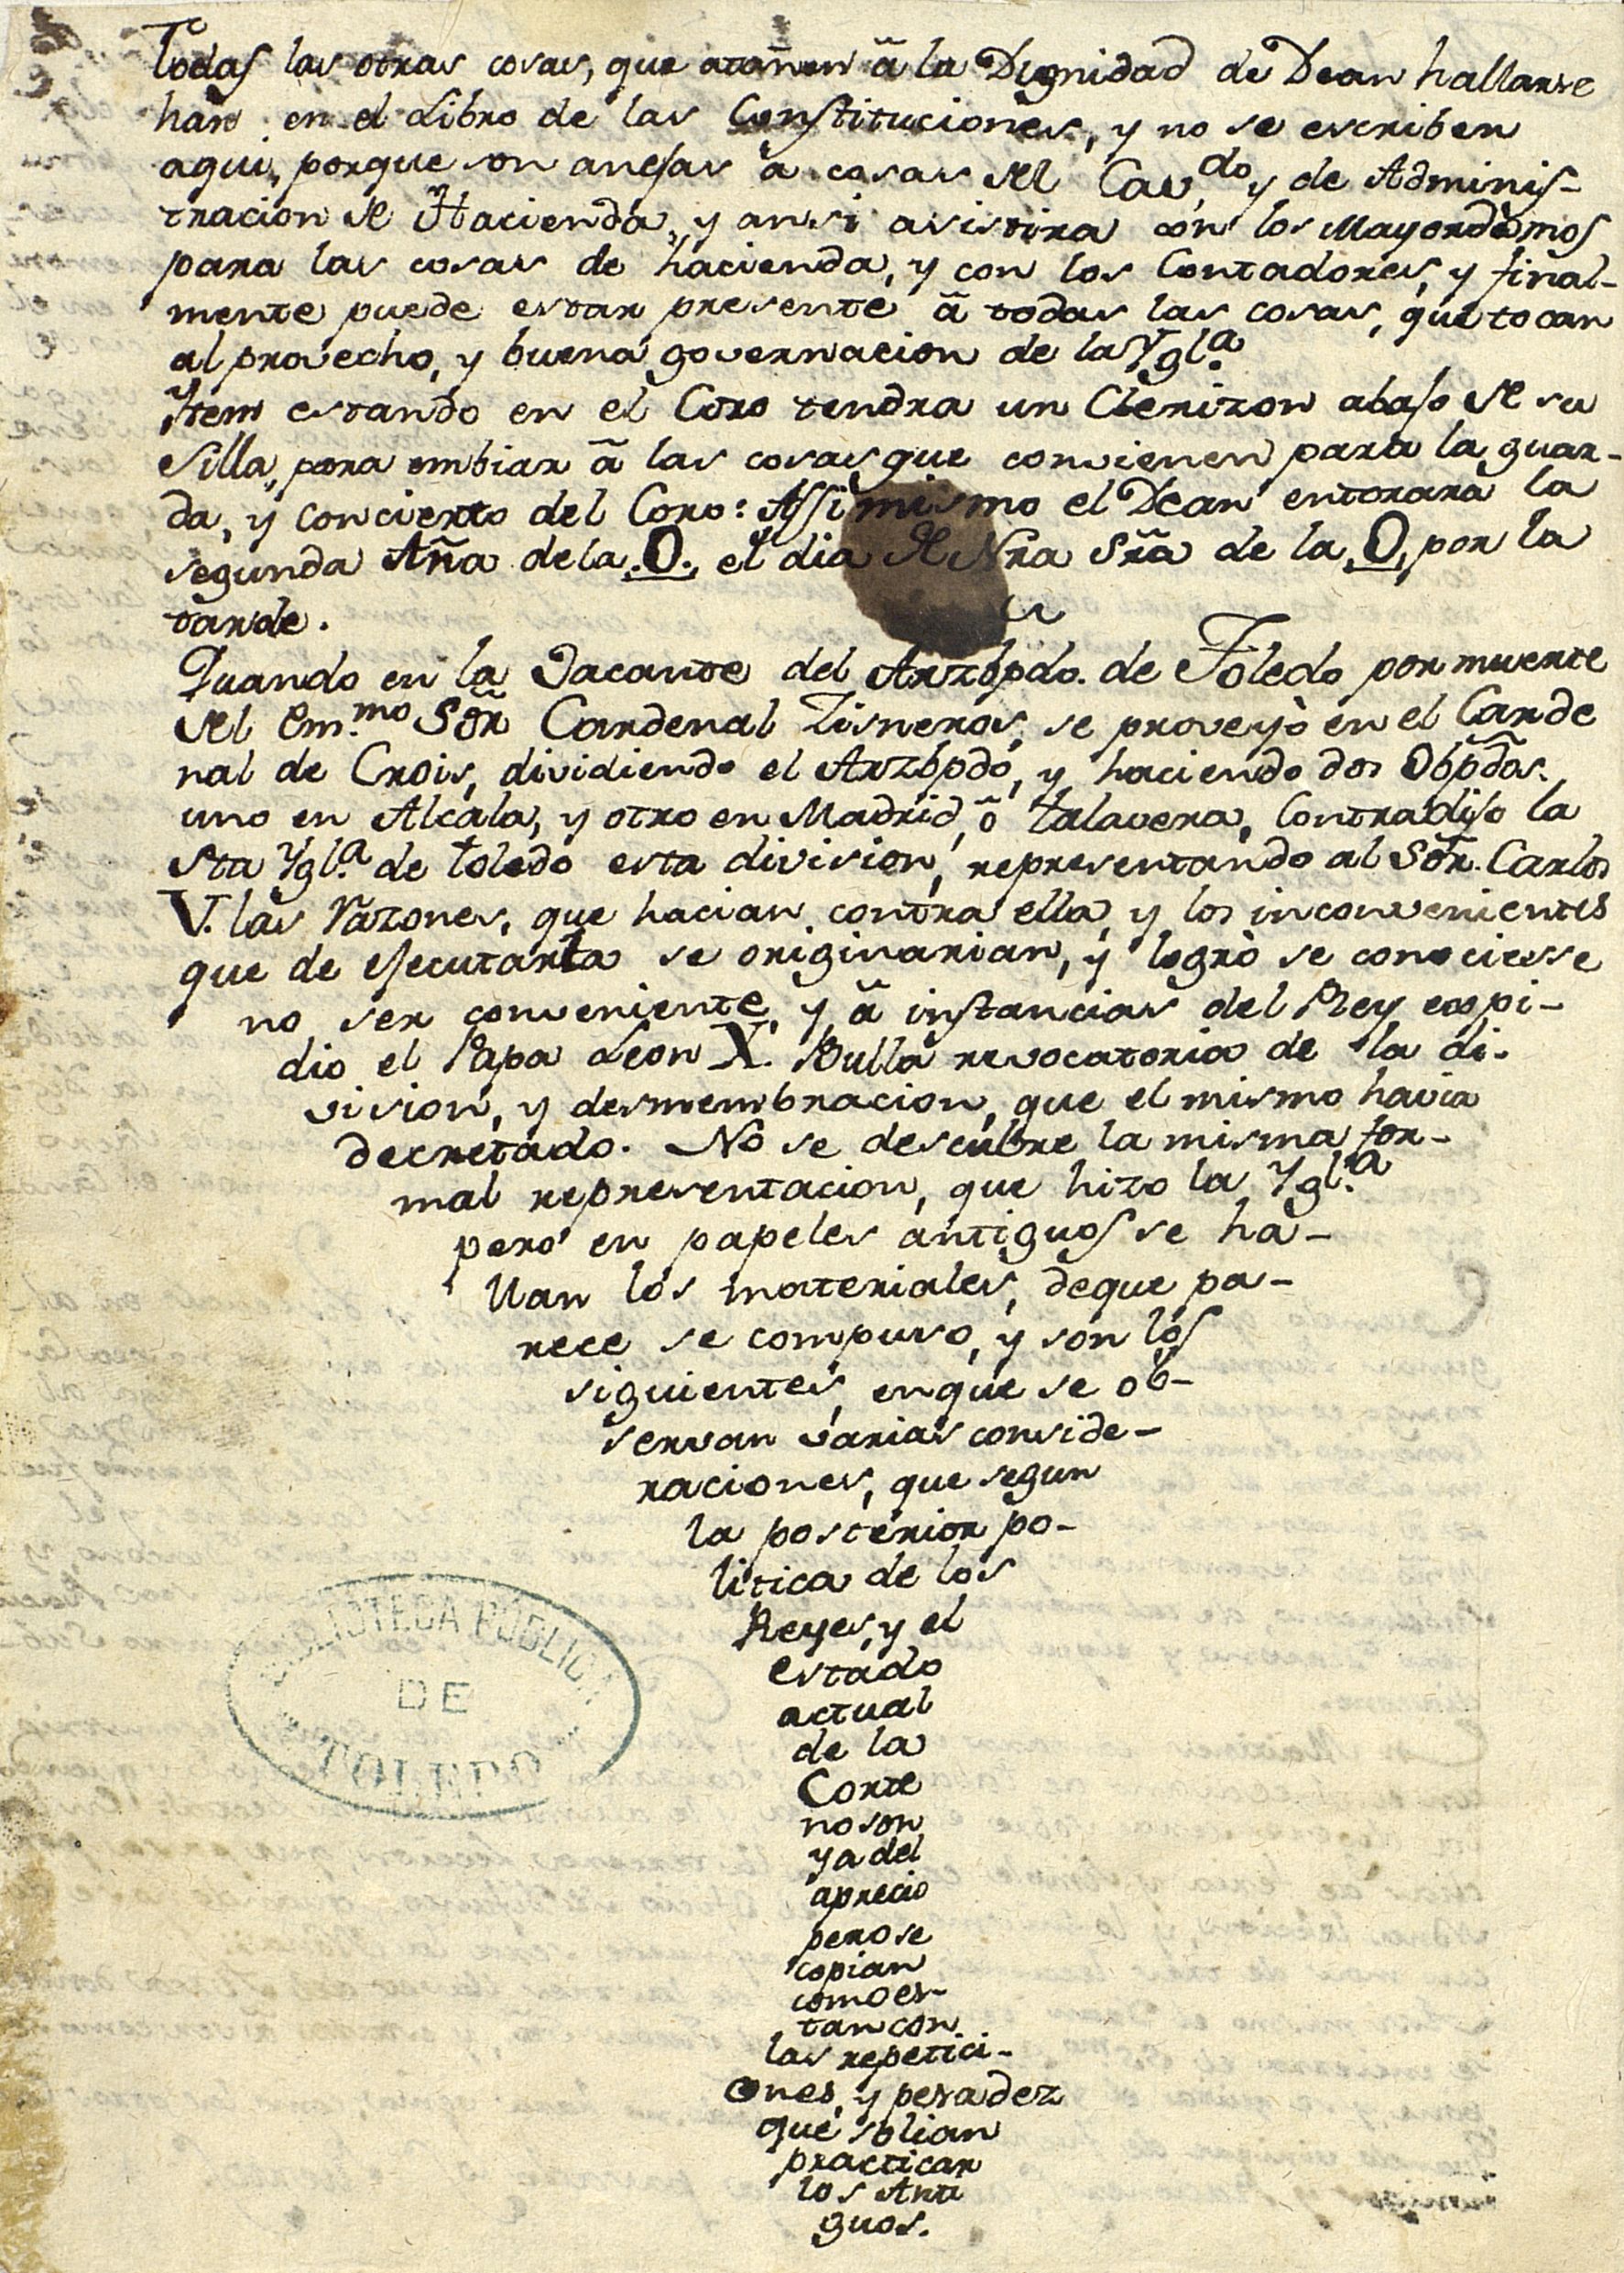 Todas las otras cosas, que atañen â la Dignidad de Dean hallarse
han en el Libro de las Constituciones, y no se escriben
aqui, porque son anejas a cosas del Cav.do y de Adminis-
tracion de Hacienda, y ansi asistira con los Mayordomos
para las cosas de hacienda, y con los Contadores, y final-
mente puede estar presente â todas las cosas, que tocan
al provecho, y buena governacion de la Ygl.a
Ytem estando en el Coro tendra un Clerizon abajo de su
Silla, para embiar â las cosas que convienen para la guar-
da, y concierto del Coro: Assimismo el Dean entonara la
segunda Aña de la .O., el dia de Nra Sra de la .O. por la
tarde.
Quando en la Vacante del Arzbpdo. de Toledo por muerte
del Em.mo Sõr Cardenal Zisneros, se proveyò en el Carde
nal de Crois, dividiendo el Arzbpdo, y haciendo dos Obpdos.
uno en Alcala, y otro en Madrid, ô talavera, Contradijo la
Sta Ygl.a de toledo esta division, representando al Sõr. Carlos
V. las razones, que hacian contra ella, y los inconvenientes
que de ejecutarla se originarian, y logrò se conociesse
no ser conveniente, y â instancias del Rey expi-
dio el Papa Leon X. Bulla revocatoria de la di-
vision, y desmembracion, que el mismo havia
decretado. No se descubre la misma for-
mal representacion, que hizo la Ygl.a
pero en papeles antiguos se ha-
llan los materiales, de que pa-
rece se compuso, y son los
siguientes, en que se ob-
servan varias conside-
raciones, que segun
la posterior po-
litica de los
Reyes, y el
estado
actual
de la
Corte
no son
ya del
aprecio
pero se
copian
como es-
tan con
las repetici-
ones, y pesadez
que solian
practicar
los Anti
guos.
BIBLIOTECA PÚBLICA
DE
TOLEDO